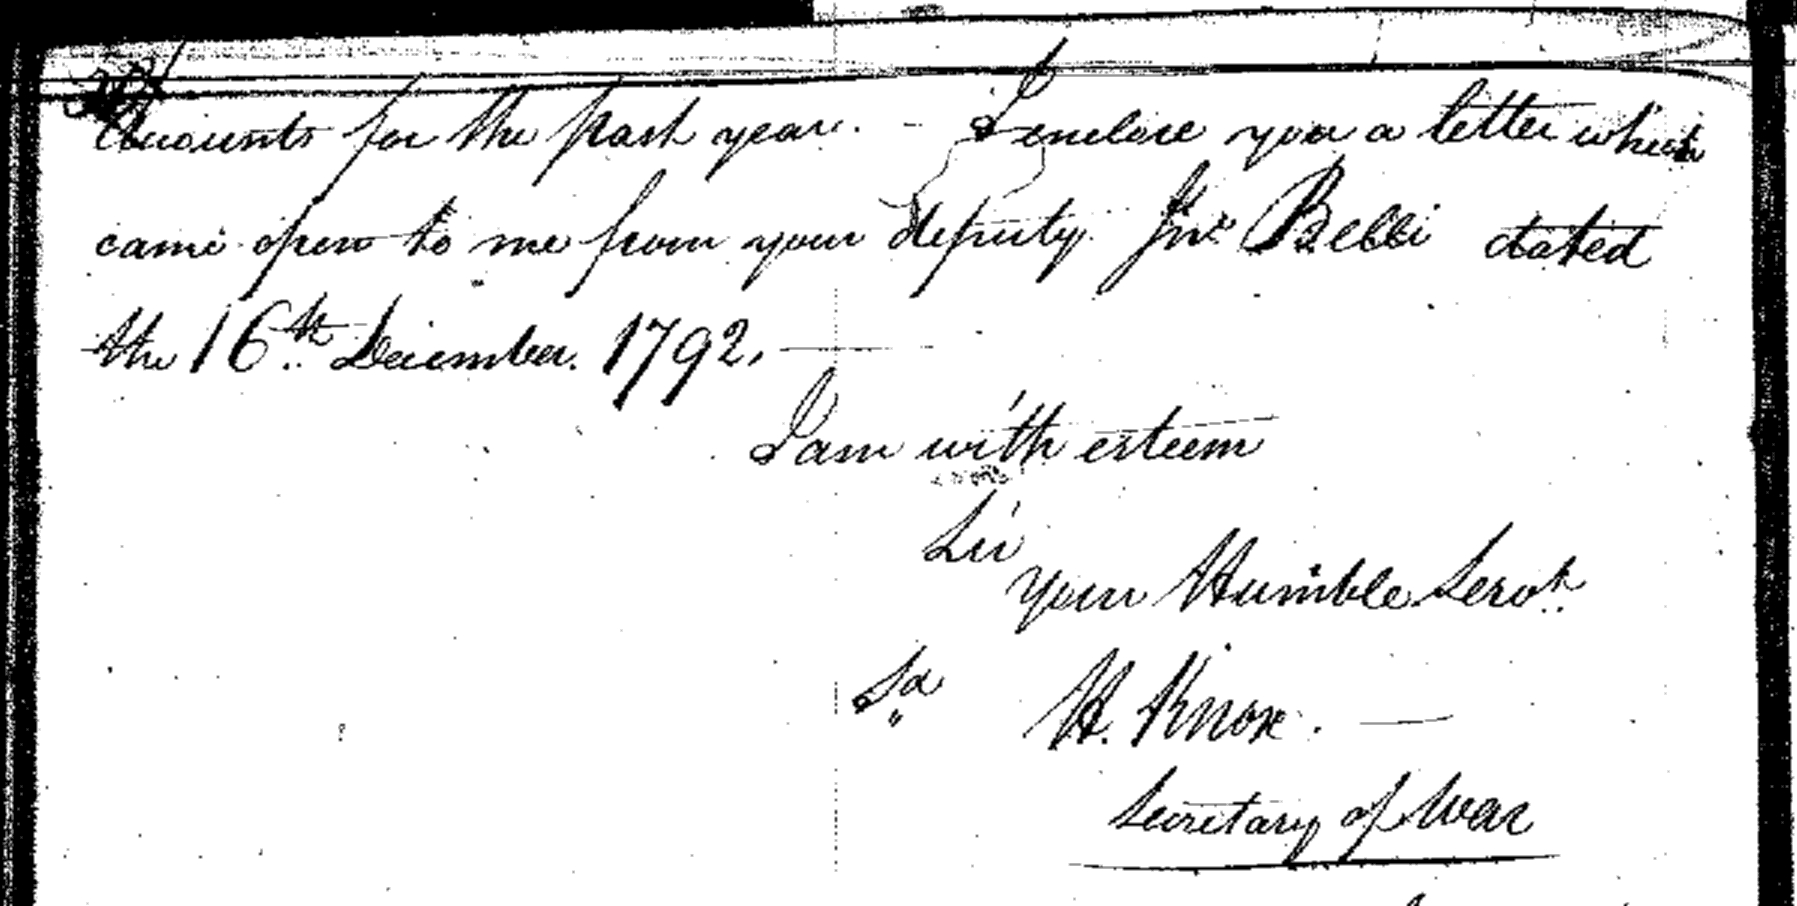 Accounts for the past year. - I enclose you a letter which
came open to me from your deputy Jno. Belli dated
the 16th December. 1792. —
I am with esteem
Sir
your Humble Servt.
Sd H. Knox. —
Secretary of War